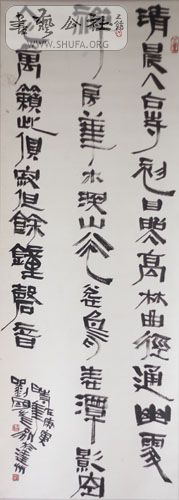 書藝公社
WWW.SHUFA.ORG
清晨入古寺初日照高林曲徑通幽處
禪房華木深山光悅鳥性潭影空
人心萬籟此俱寂但餘鐘磬音